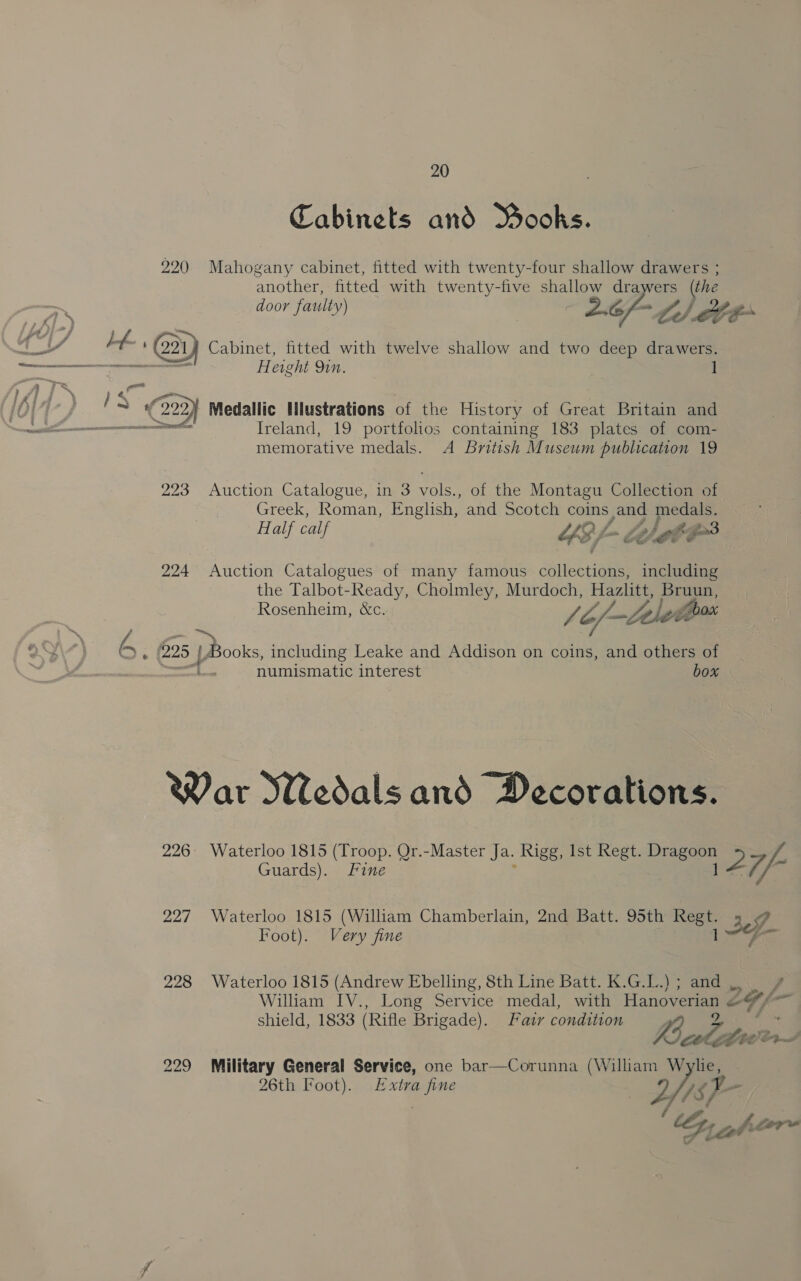 20
Cabinets and Books.
220 Mahogany cabinet, fitted with twenty-four shallow drawers ;
another, fitted with twenty-five shallow drawers (the
door faulty) 26/-
221 Cabinet, fitted with twelve shallow and two deep drawers.
Height 9in. 1
222 Medallic Illustrations of the History of Great Britain and
Ireland, 19 portfolios containing 183 plates of com-
memorative medals. A British Museum publication 19
223 Auction Catalogue, in 3 vols., of the Montagu Collection of
Greek, Roman, English, and Scotch coins and medals.
Half calf 3
224 Auction Catalogues of many famous collections, including
the Talbot-Ready, Cholmley, Murdoch, Hazlitt, Bruun,
Rosenheim, &c. box
225 Books, including Leake and Addison on coins, and others of
numismatic interest box
War Medals and Decorations.
226 Waterloo 1815 (Troop. Qr.-Master Ja. Rigg, 1st Regt. Dragoon
Guards). Fine 1 27/-
227 Waterloo 1815 (William Chamberlain, 2nd Batt. 95th Regt.
Foot). Very fine 1
228 Waterloo 1815 (Andrew Ebelling, 8th Line Batt. K.G.L.) ; and
William IV., Long Service medal, with Hanoverian
shield, 1833 (Rifle Brigade). Fair condition 2
229 Military General Service, one bar—Corunna (William Wylie,
26th Foot). Extra fine